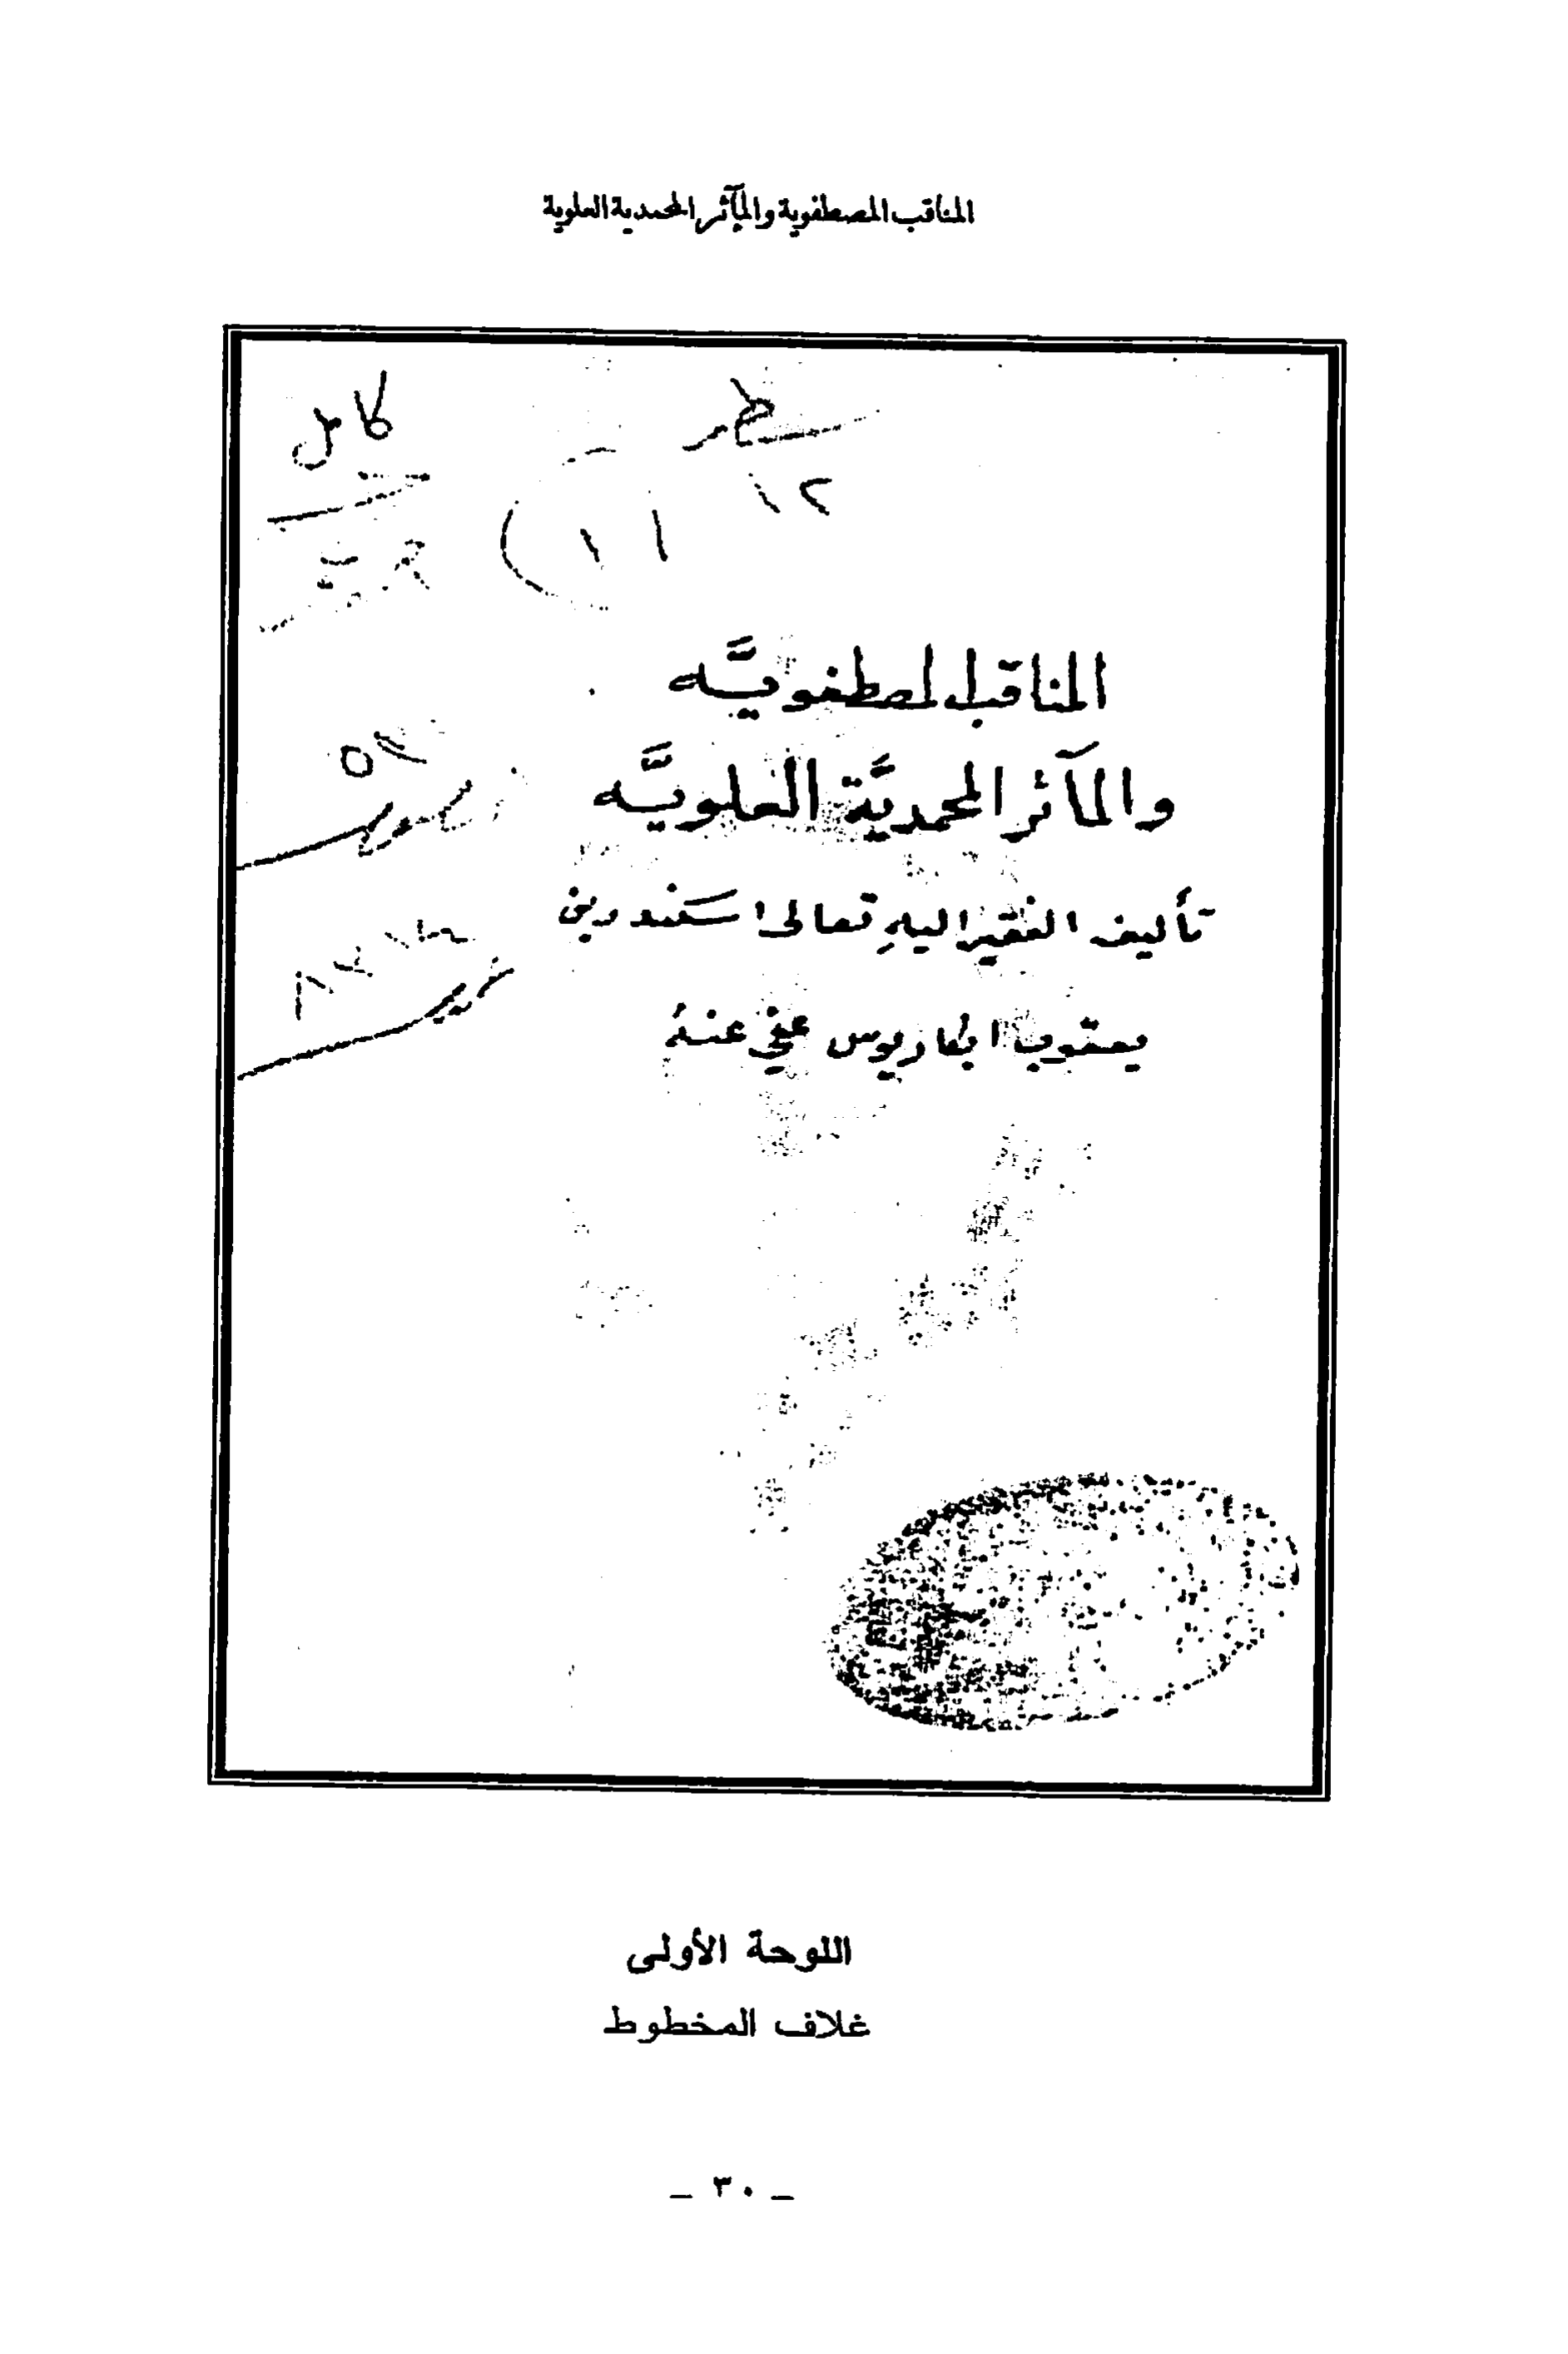 المناقب المصطفوية والمآثر المحمدية العلوية
كامل
١٢
المناقب المصطفويَّه
والمآثر المحمديَّة العلويَّه
تأليف الفقير اليهِ تعالى اسكندر بن
يعقوب ابكاريوس عفي عنهُ
اللوحة الأولى
غلاف المخطوط
_ ٣٠ _